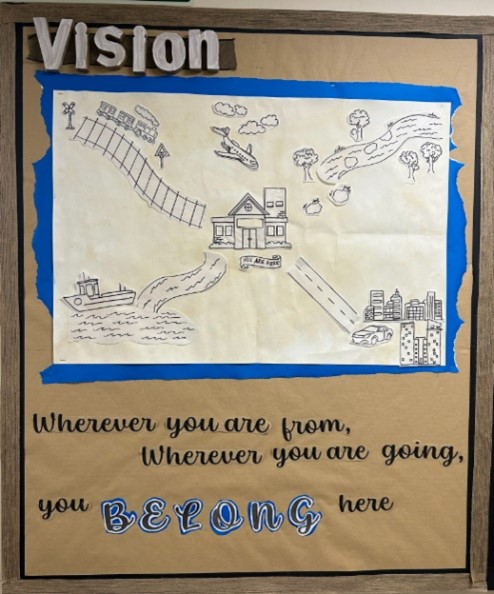 Vision
YOU ARE HERE
Wherever you are from,
Wherever you are going,
you BELONG here